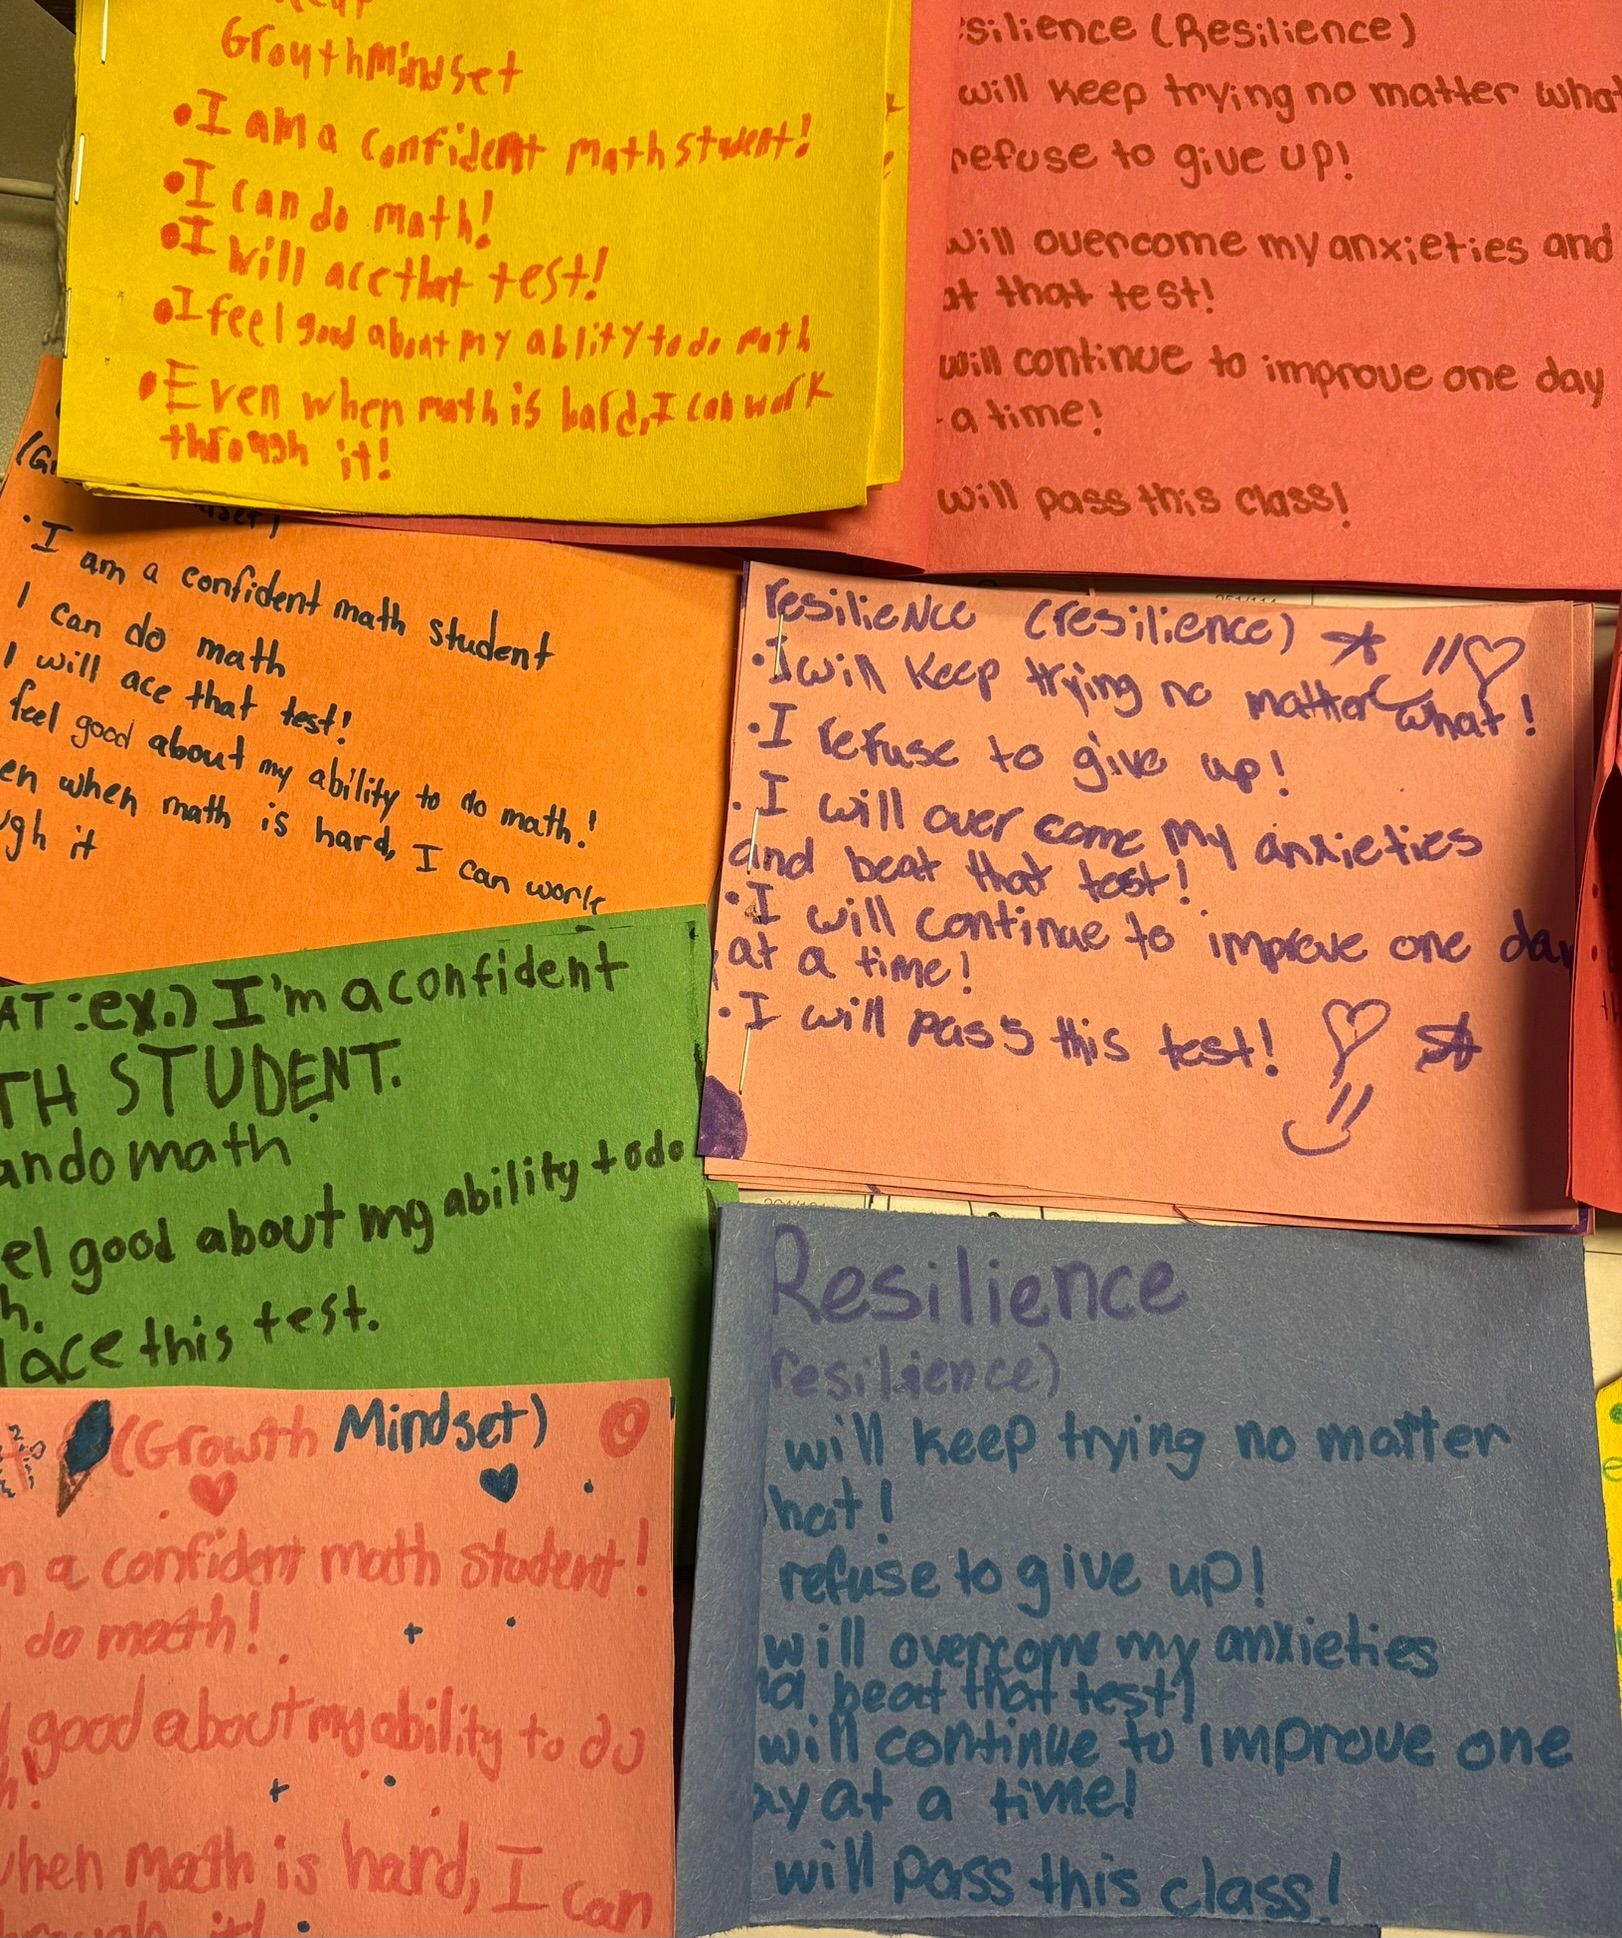 Grouth Mindset
• I am a confident math student!
• I can do math!
• I will ace that test!
• I feel good about my ablity to do math
• Even when math is hard, I can work
through it!
silience (Resilience)
will keep trying no matter what
refuse to give up!
will overcome my anxieties and
at that test!
will continue to improve one day
a time!
will pass this class!
• I am a confident math student
I can do math
I will ace that test!
feel good about my ability to do math!
en when math is hard, I can work
ugh it
resilience (resilience)
• I will keep trying no matter what!
• I refuse to give up!
• I will over come my anxieties
and beat that test!
• I will continue to improve one day
at a time!
• I will pass this test!
AT: ex.) I'm a confident
TH STUDENT.
an do math
el good about my ability to do
h.
ace this test.
Resilience
resilience)
will keep trying no matter
hat!
refuse to give up!
will overcome my anxieties
nd beat that test!
will continue to improve one
ay at a time!
will pass this class!
(Growth Mindset)
m a confident math student!
do math!
good about my ability to do
h!
when math is hard, I can
through it!